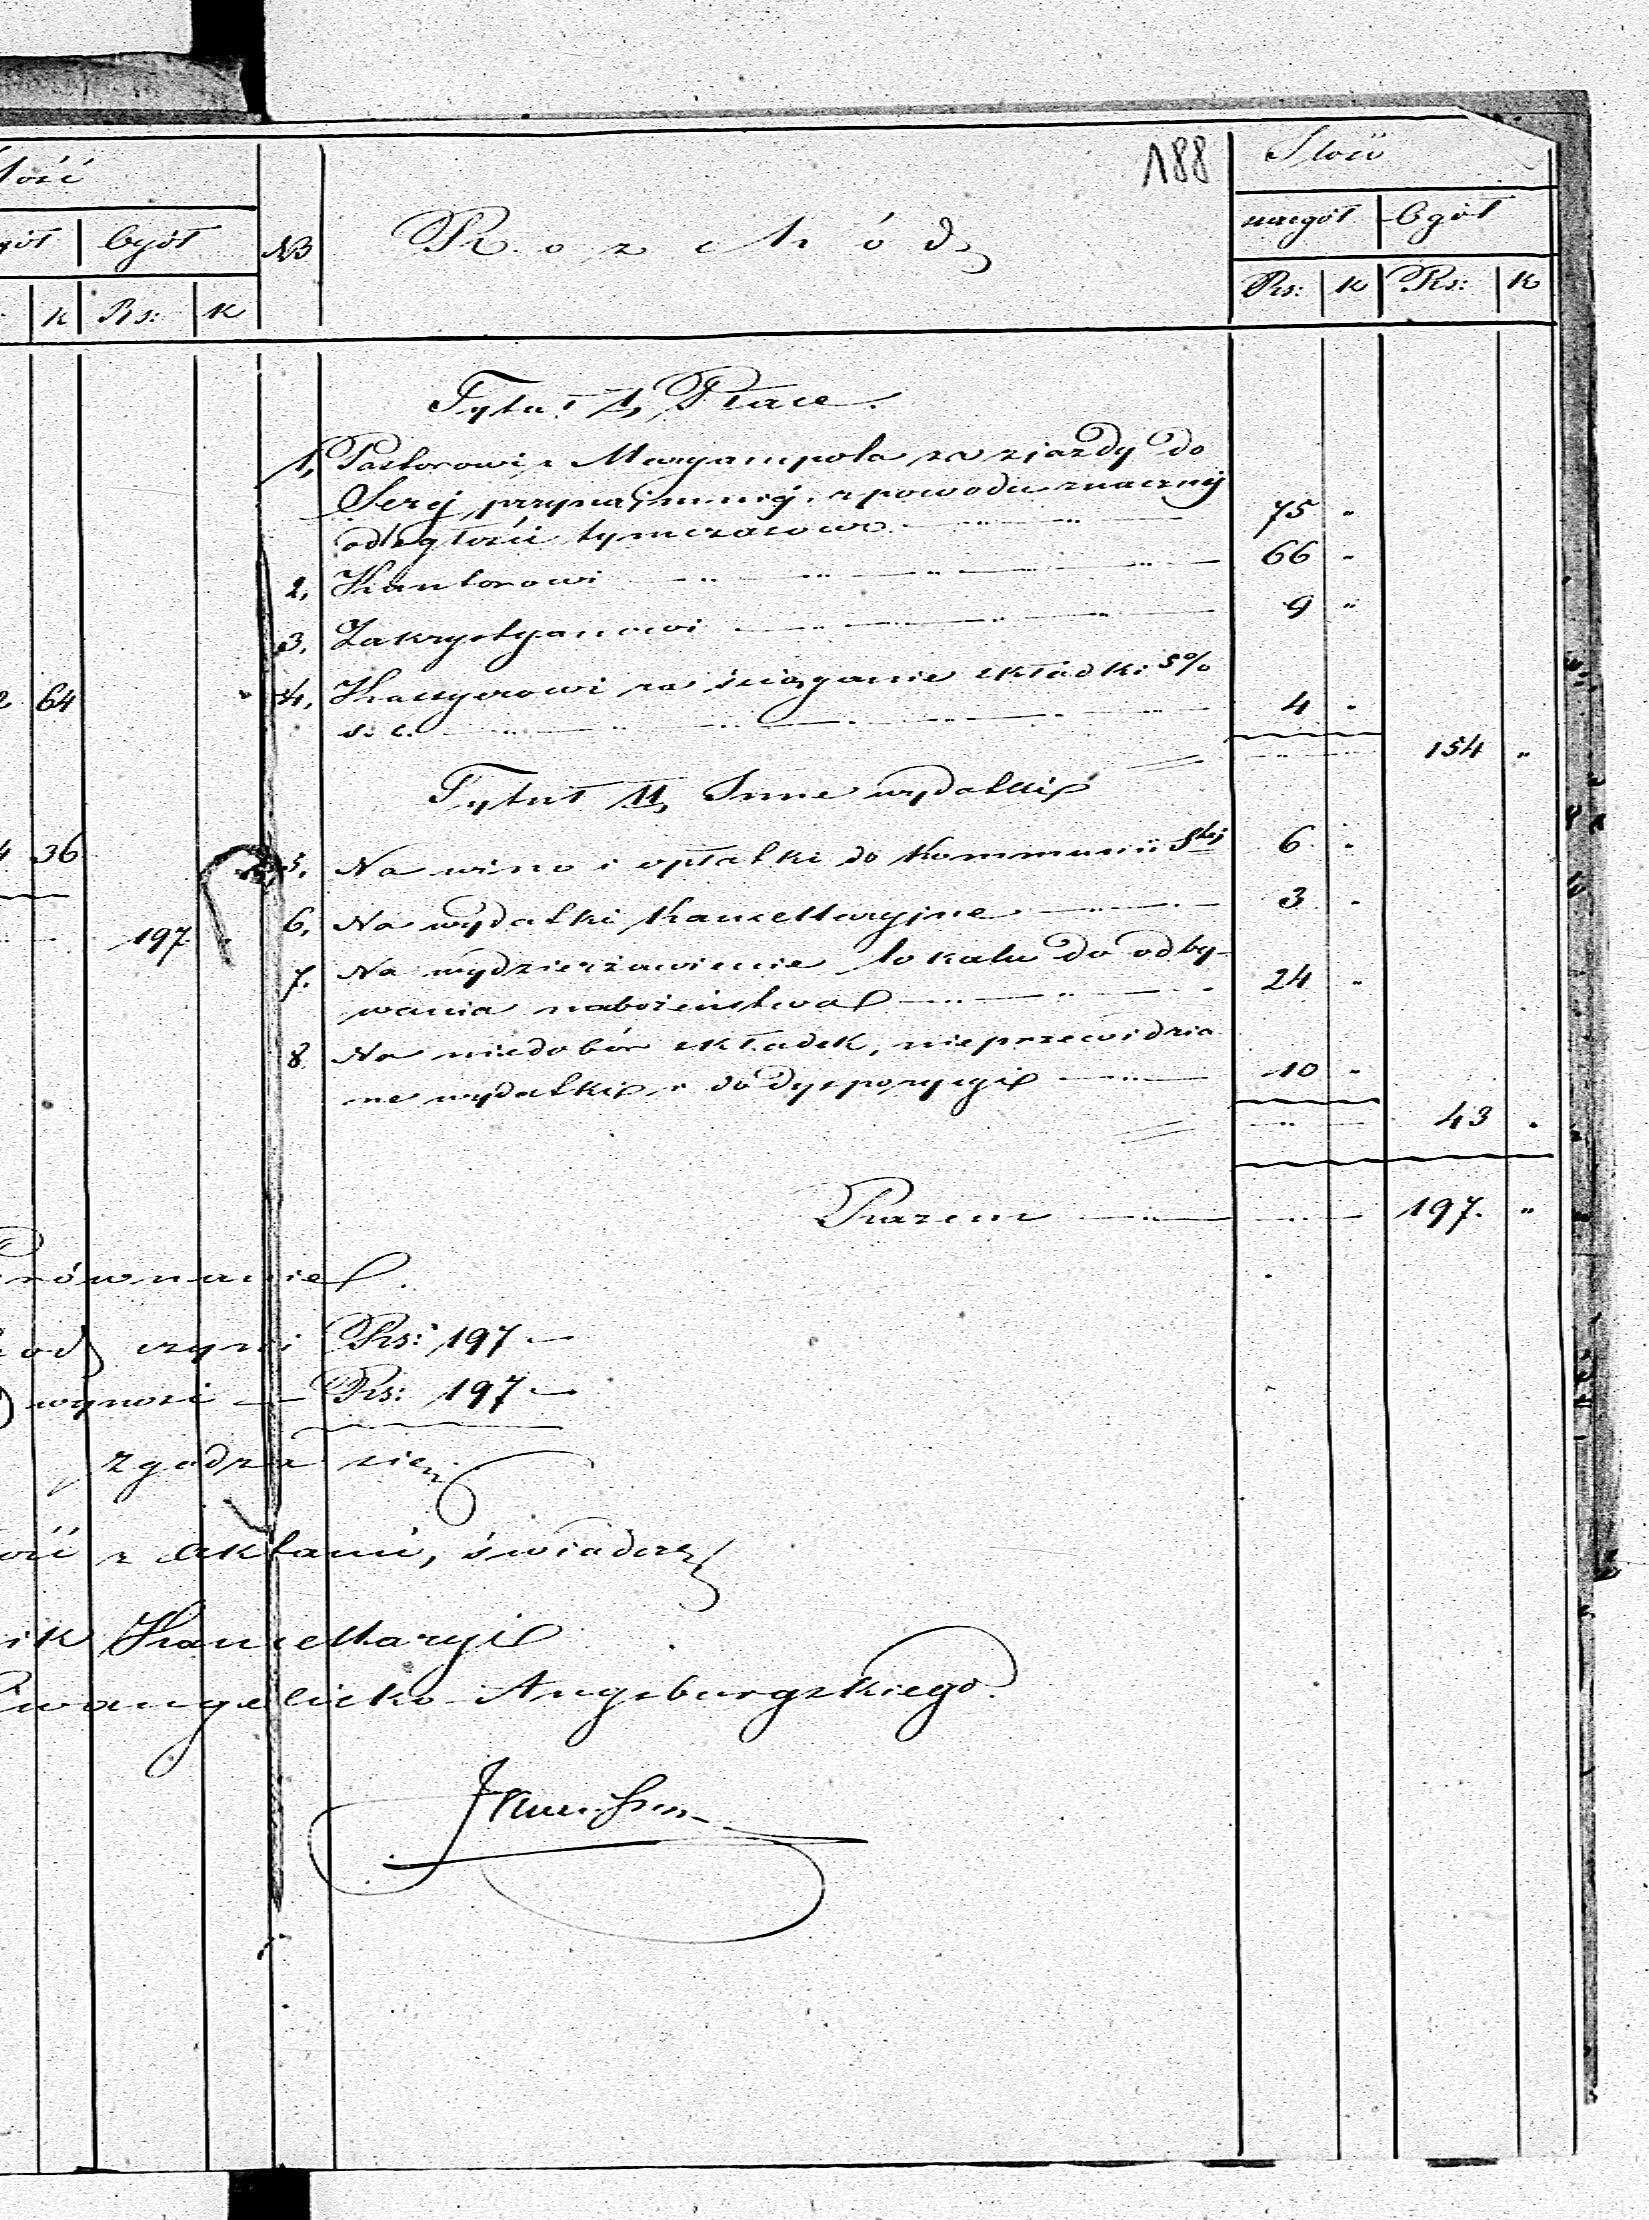 188
Ilość
ogół
k Rs: k
№ Rozchód
Ilość
szczegół ogół
Rs: k Rs: k
Tytuł I, Płace.
1, Pastorowi z Maryampola za zjazdy do
Serej przynajmniéj, z powodu znacznéj
odległości tymczasowo 75 "
2, Kantorowi 66 "
3, Zakrystyanowi 9 "
64
4, Kassyerowi za ściąganie składki 5%
s. c. 4 "
154 "
Tytuł II, Inne wydatki
36
5, Na wino i opłatki do Kommunii Stéj 6 "
6, Na wydatki Kancellaryjne 3 "
197
7. Na wydzierżawienie lokalu do odby-
wania nabożeństwa 24 "
8 Na niedobór składek, nieprzewidzia
ne wydatki i do dyspozycyi 10 "
43 "
Razem 197. "
równanie.
od czyni Rs: 197 —
wynosi — Rs: 197 —
zgadza się
ość z Aktami, świadczy
ik Kancellaryi
Ewangelicko-Augsburgskiego.